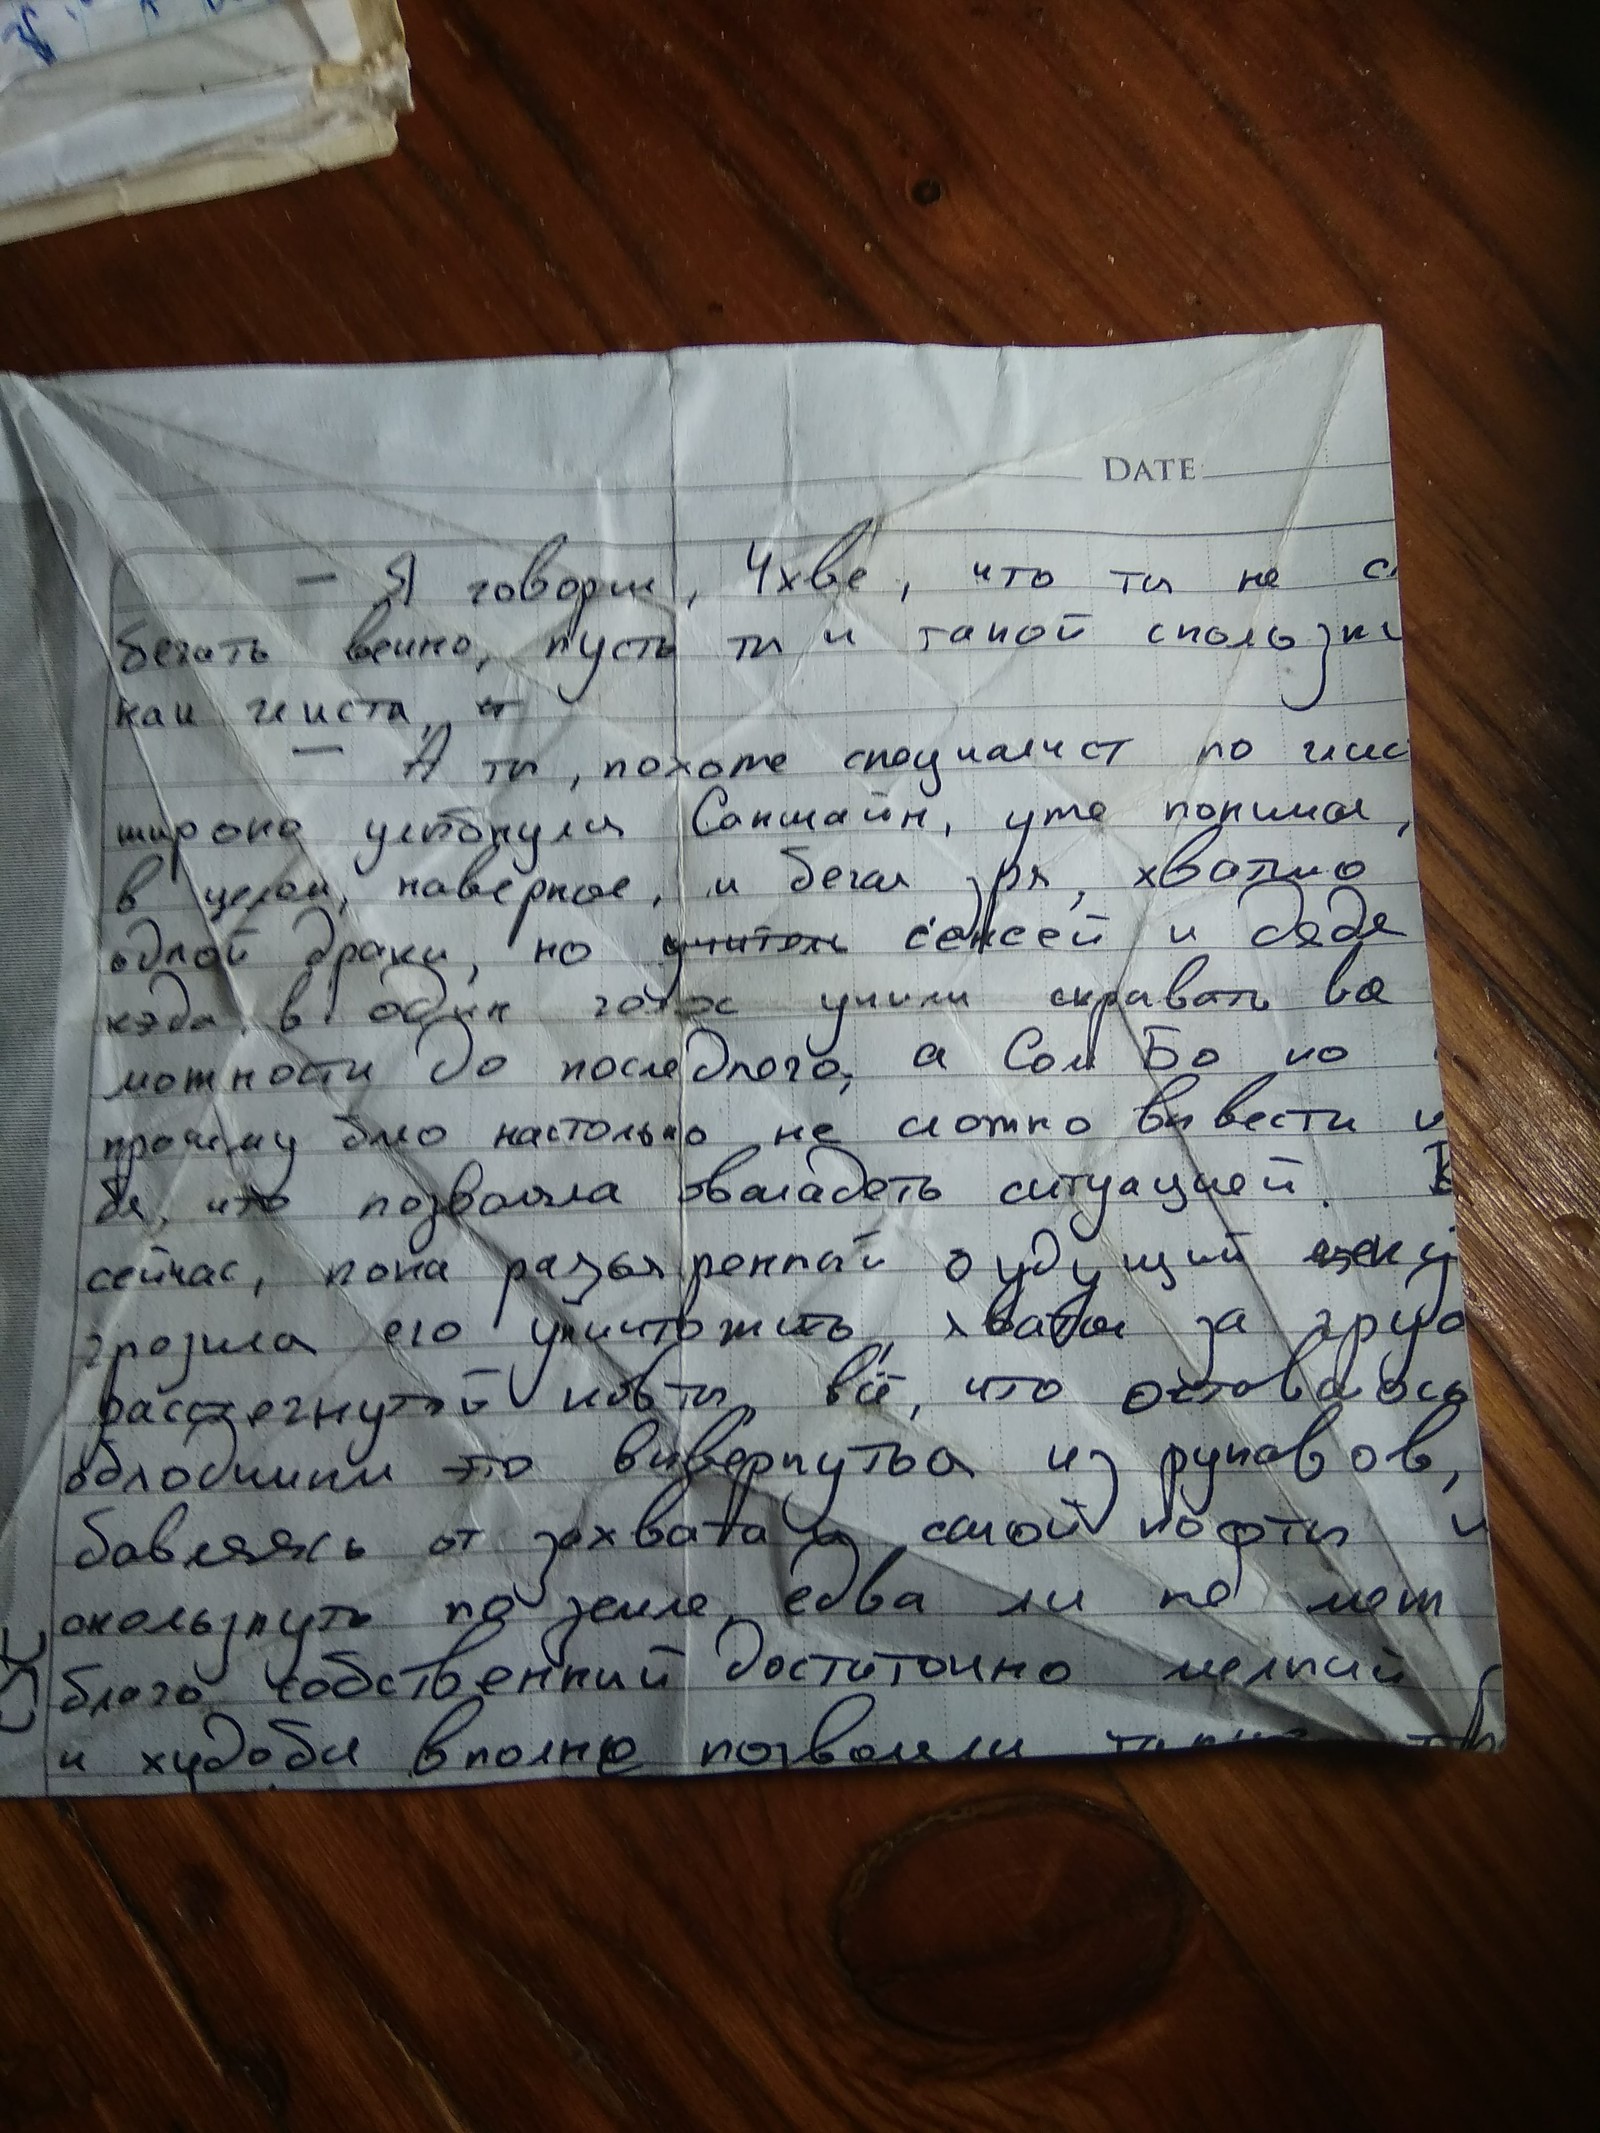 DATE
— Я говорил, Чхве, что ты не с
бегать вечно, пусть ты и такой скользки
как глиста,
— А ты, похоже специалист по глис
широко улыбнулся Саншайн, уже понимая,
в целом, наверное, и бегал зря, хватило
одной драки, но учитель сенсей и дядя
кэда в один голос учили скрывать во
можности до последнего, а Сол Бо по
прочему было настолько не сложно вывести и
бя, что позволяло овладеть ситуацией. В
сейчас, пока разъяренный будущий
грозился его уничтожить, хватая за груд
расстегнутой кофты, всё, что оставалось
обладишки это вывернуться из рукавов,
бавляясь от захвата и самой кофты и
скользнуть по земле, едва ли не меж
благо собственный достаточно мелкий
и худоба вполне позволяли